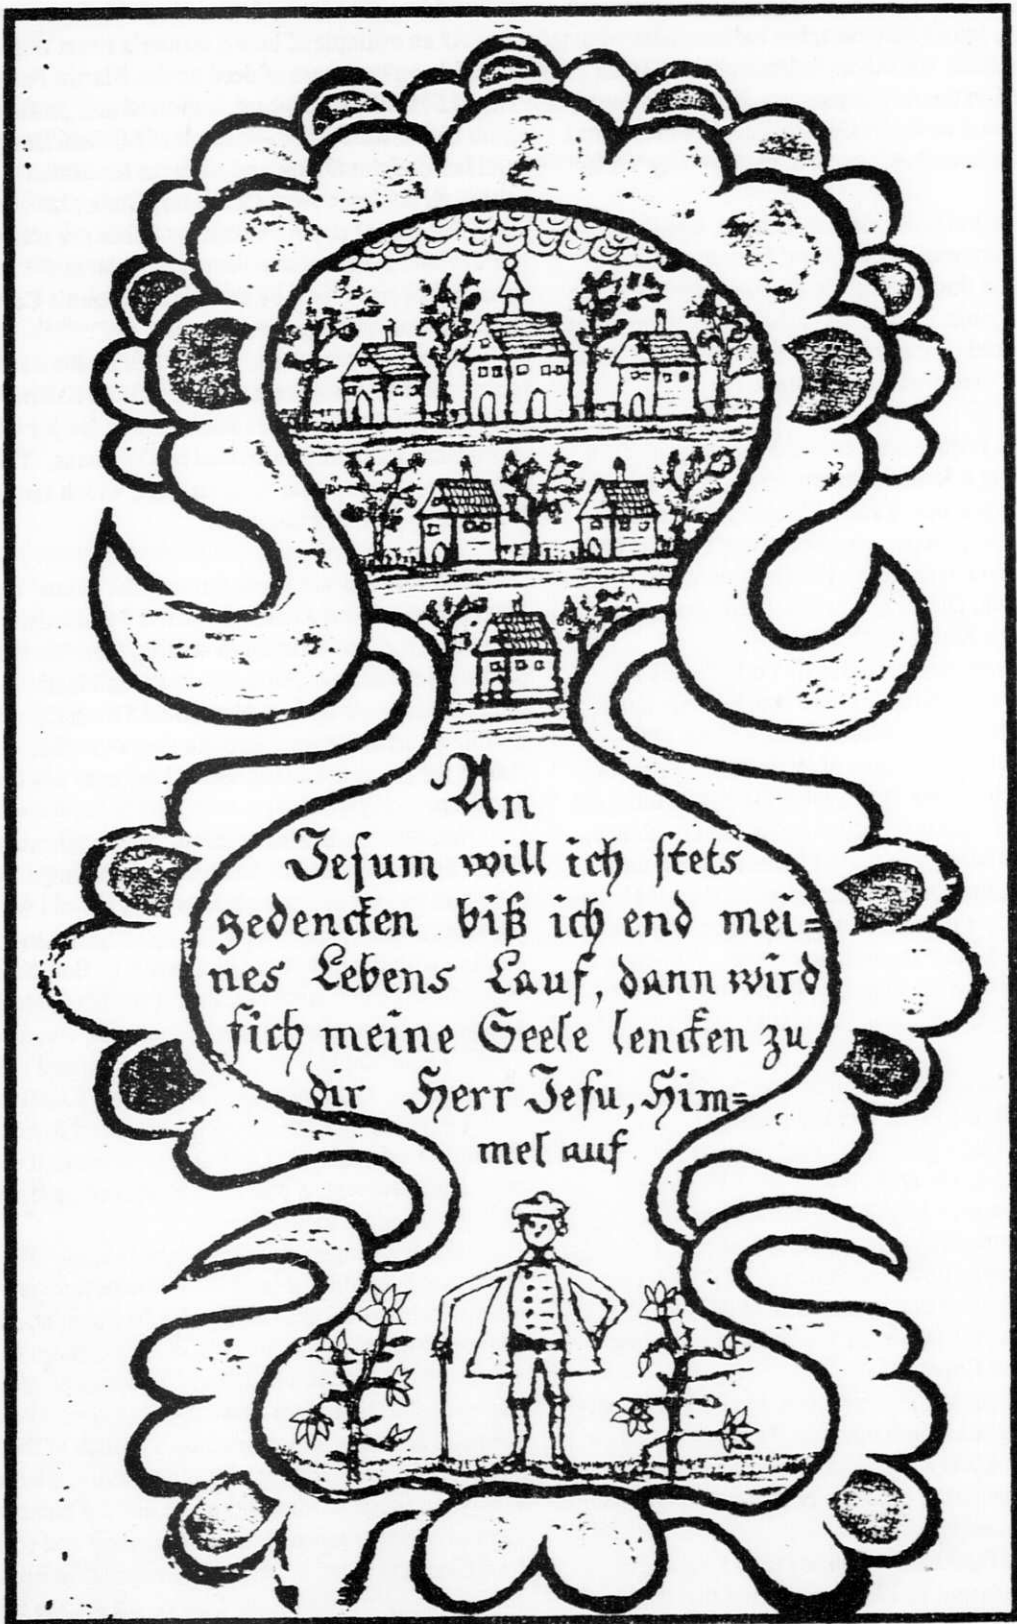 An
Jesum will ich stets
gedencken biß ich end mei=
nes Lebens Lauf, dann wird
sich meine Seele lencken zu
dir Herr Jesu, Him=
mel auf